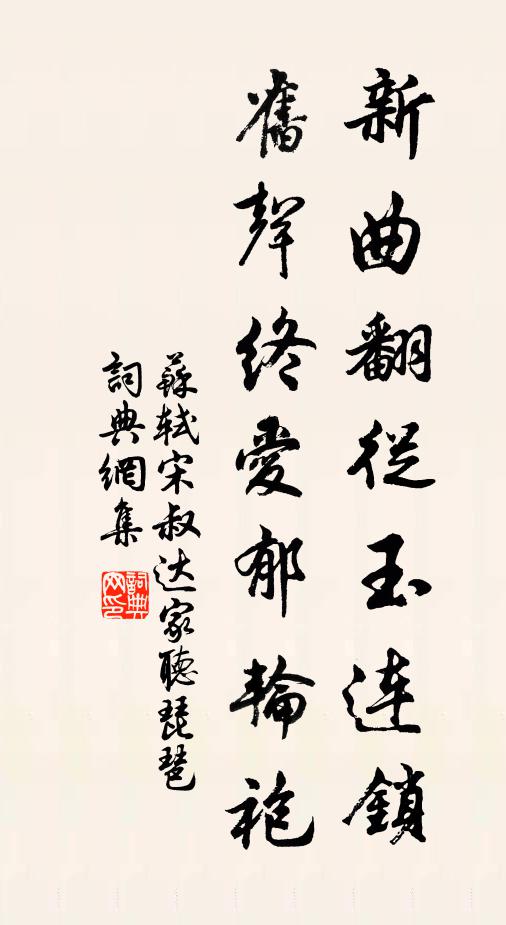 新曲翻從玉连鎖
舊聲終愛郁輪袍
蘇轼宋叔达家聽琵琶
詞典網集
詞典网印